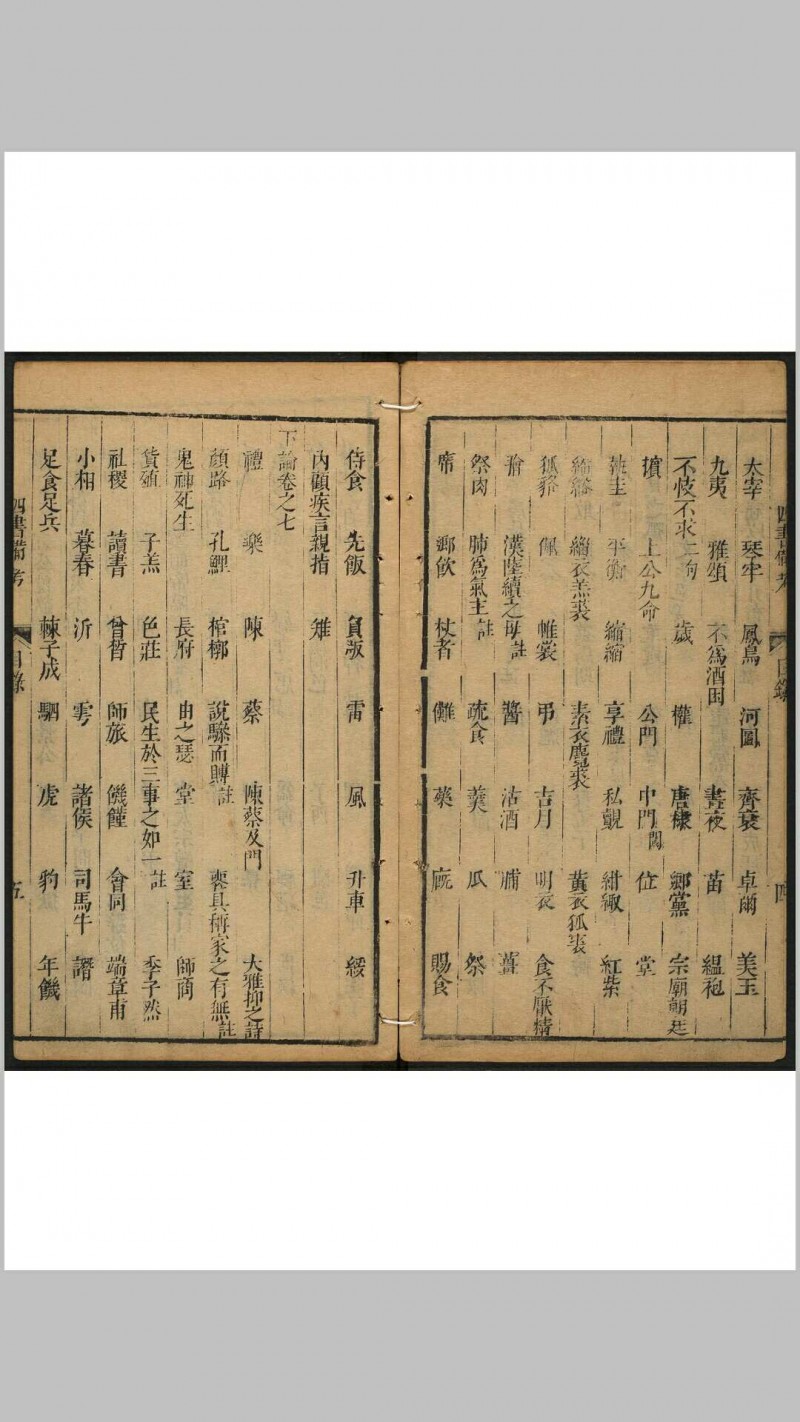 太宰 琴牢 鳳鳥 河圖 齊衰 卓爾 美玉
九夷 雅頌 不爲酒困 晝夜 苗 縕袍
不忮不求二句 歲 權 唐棣 鄉黨 宗廟朝廷
擯 上公九命 公門 中門闑 位 堂
執圭 平衡 縮縮 享禮 私覿 紺緅 紅紫
絺綌 緇衣羔裘 素衣麑裘 黃衣狐裘
狐貉 佩 帷裳 弔 吉月 明衣 食不厭精
膾 漢陸續之母註 醬 沽酒 脯 薑
祭肉 肺爲氣主註 疏食 羹 瓜 祭
席 鄉飲 杖者 儺 藥 廐 賜食
四書備考 目錄 四
侍食 先飯 負版 雷 風 升車 綏
內顧疾言親指 雉
下論卷之七
禮 樂 陳 蔡 陳蔡及門 大雅抑之詩
顏路 孔鯉 棺槨 說驂而賻註 喪具稱家之有無註
鬼神死生 長府 由之瑟 堂 室 師商
貨殖 子羔 色莊 民生於三事之如一註 季子然
社稷 讀書 曾晳 師旅 饑饉 會同 端章甫
小相 暮春 沂 雩 諸侯 司馬牛 譖
足食足兵 棘子成 駟 虎 豹 年饑
四書備考 目錄 五